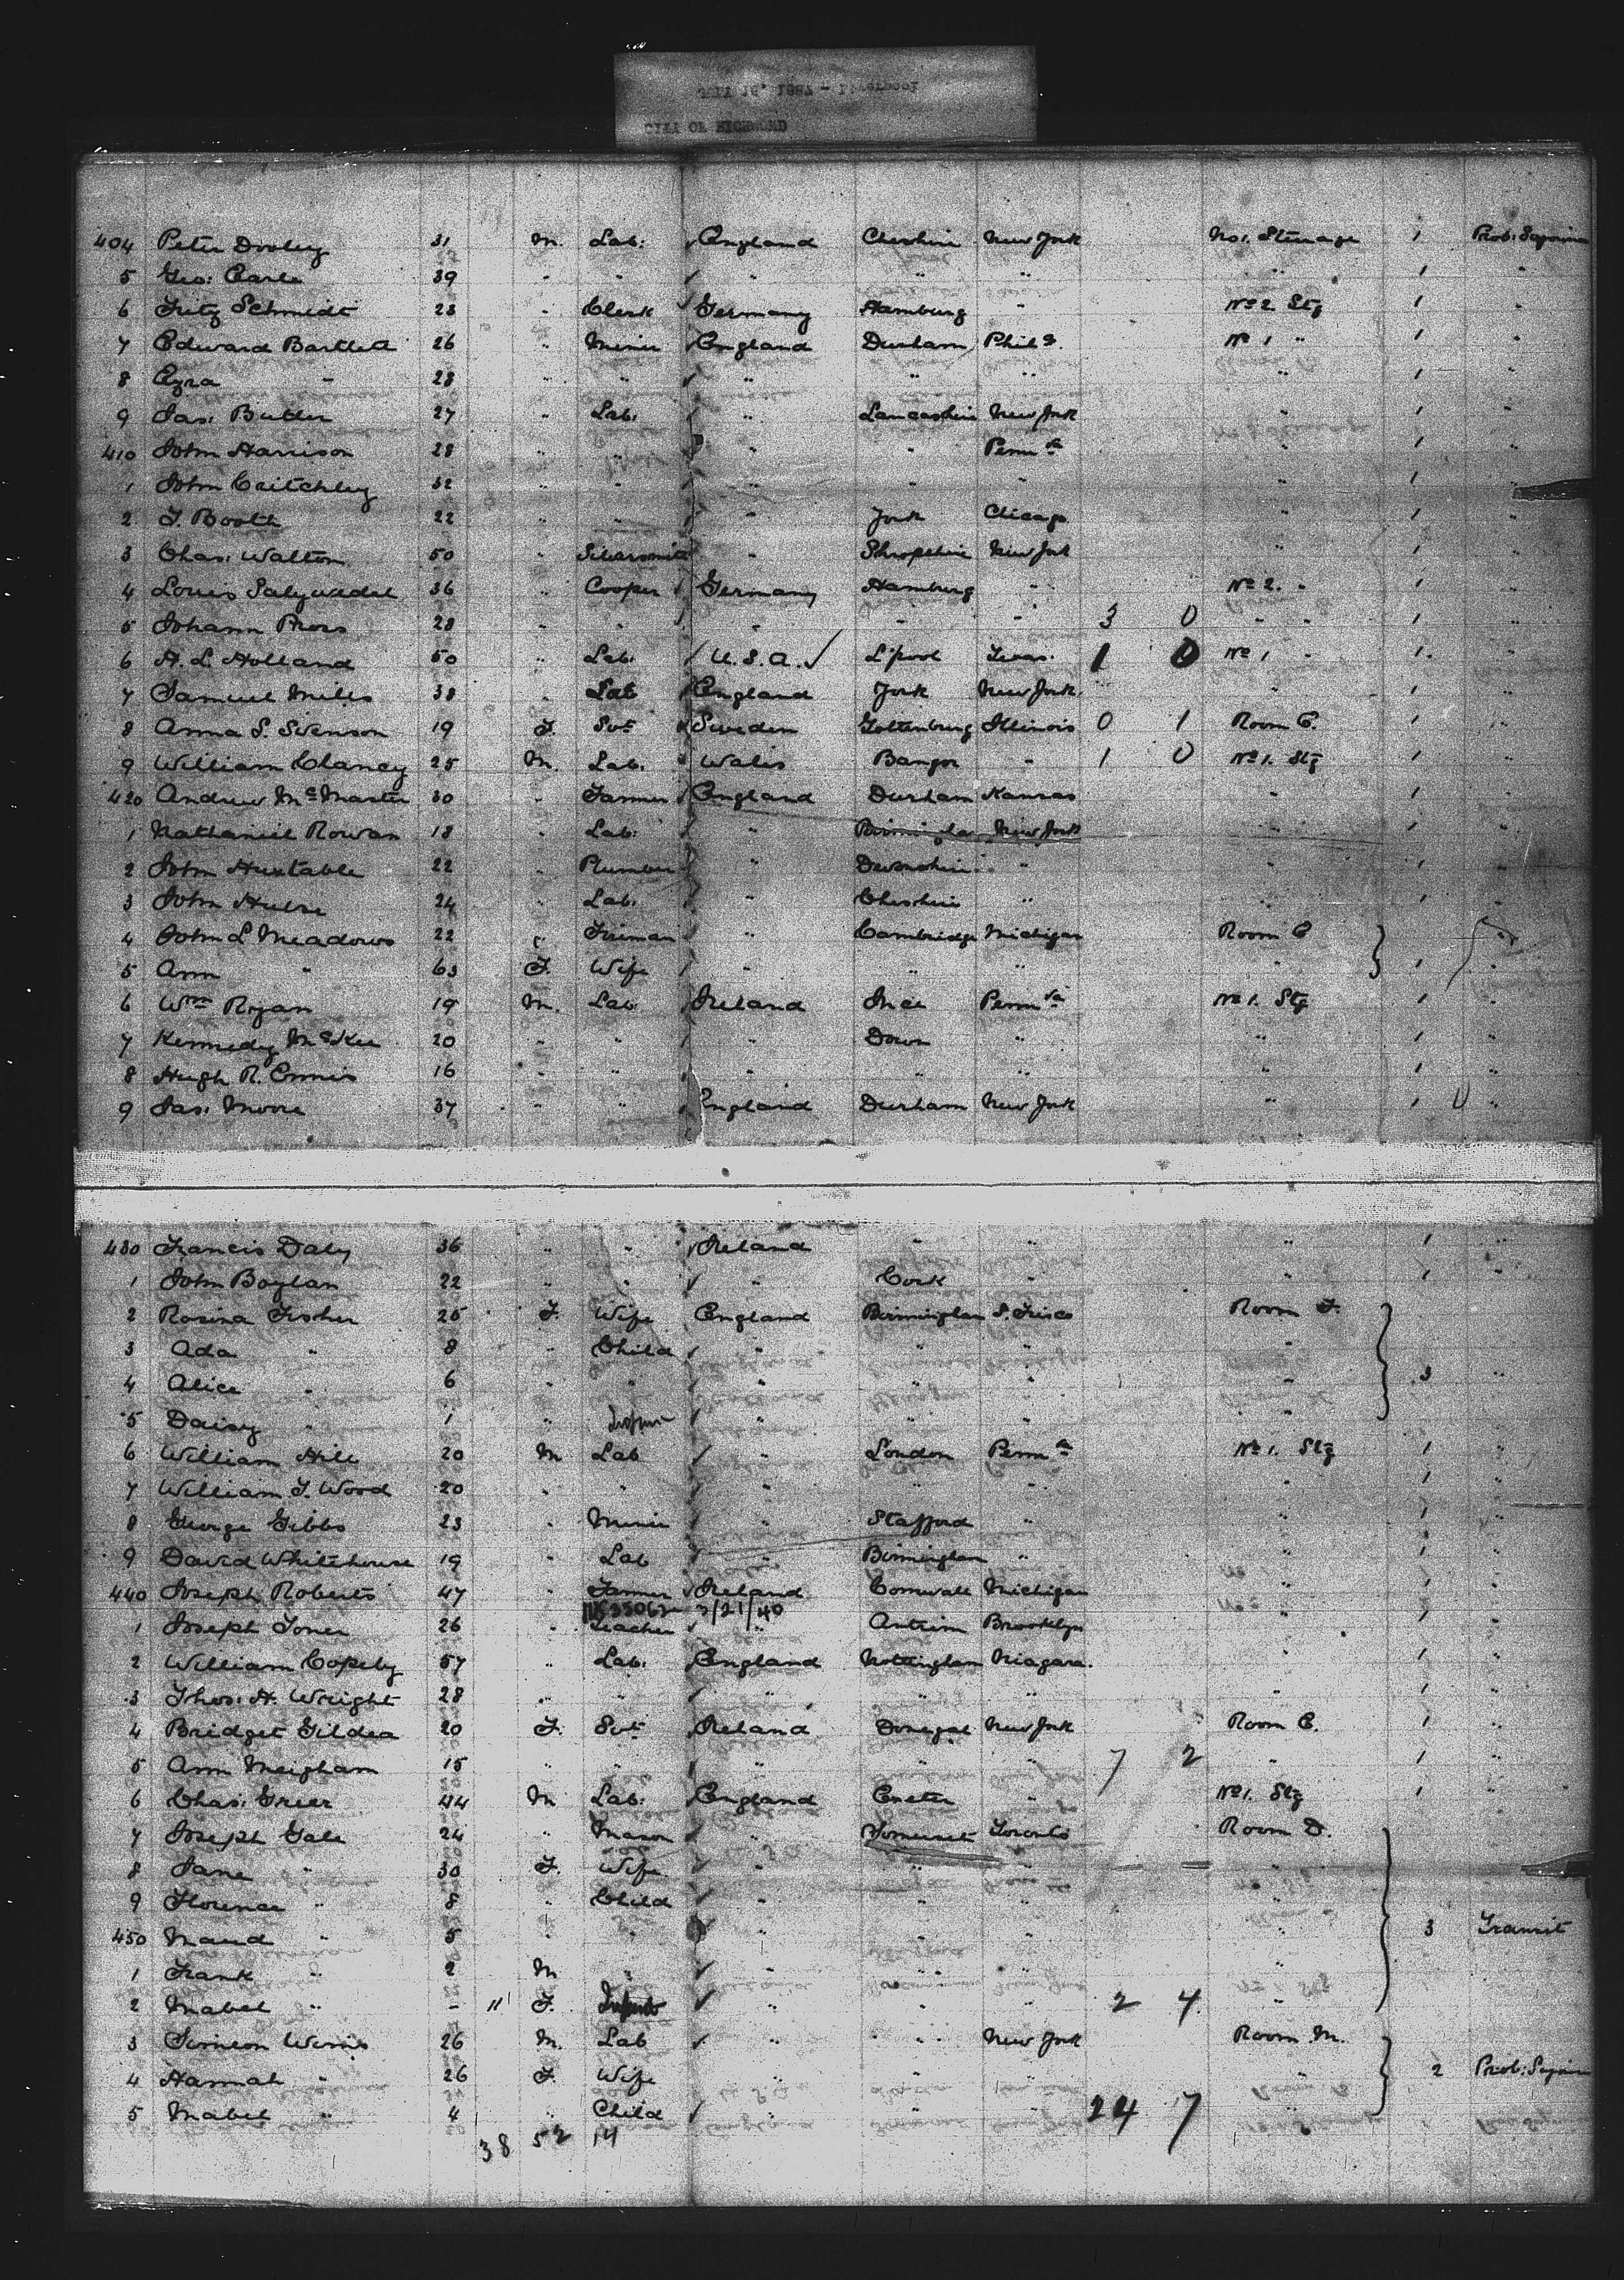 CITY OF RICHMOND
404 Peter Dooley 31 M. Lab: England Cheshire New York No 1. Steerage 1
5 Geo: Earle 39 " " " " " " 1 "
6 Fritz Schmidt 23 " Clerk Germany Hamburg " No 2 Stg 1 "
7 Edward Bartlett 26 " Miner England Durham Phila. No 1 " 1 "
8 Ezra " 28 " " " " " " 1 "
9 Jas: Butler 27 " Lab: " Lancashire New York " 1 "
410 John Harrison 28 " " " " Penna " 1 "
1 John Critchley 32 " " " " " " 1 "
2 J. Booth 22 " " " York Chicago " 1 "
3 Chas: Walton 50 " Silversmith " Shropshire New York " 1 "
4 Louis 36 " Cooper Germany Hamburg " No 2. " 1 "
5 Johann 28 " " " " " 3 0 " " 1 "
6 H. L. Holland 50 " Lab: U.S.A. L'pool Texas. 1 0 No 1 " 1 "
7 Samuel Miles 38 " Lab England York New York " 1 "
8 Anna S. Svenson 19 F. Svt Sweden Gottenburg Illinois 0 1 Room C. 1 "
9 William Clancy 25 M. Lab. Wales Bangor " 1 0 No 1. Stg 1 "
420 Andrew McMaster 30 " Farmer England Durham Kansas " 1 "
1 Nathaniel Rowan 18 " Lab: " Birmingham New York " 1 "
2 John Huxtable 22 " Plumber " Devonshire " " 1 "
3 John Hulse 24 " Lab. " Cheshire " " 1 "
4 John L Meadows 22 " Fireman " Cambridge Michigan Room C "
5 Ann " 63 F. Wife " " " " 1 "
6 Wm Ryan 19 M. Lab Ireland Penna No 1. Stg 1 "
7 Kennedy McKee 20 " " " Down " " 1 "
8 Hugh R. Ennis 16 " " " " " " 1 "
9 Jas: Moore 37 " " England Durham New York " 1 "
430 Francis Daly 36 " " Ireland " " " 1 "
1 John Boylan 22 " " Cork " " 1 "
2 Rosina Fisher 25 F. Wife England Birmingham S. Frisco Room F.
3 Ada " 8 " Child " " " "
4 Alice " 6 " " " " " " 3 "
5 Daisy " 1 " Infant " " " "
6 William Hill 20 M Lab " London Penna No 1. Stg 1 "
7 William J. Wood 20 " " " " " 1 "
8 George Gibbs 23 " Miner " Stafford " 1 "
9 David Whitehouse 19 " Lab " Birmingham " 1 "
440 Joseph Roberts 47 " Farmer Ireland Cornwall Michigan 1 "
3/21/40
1 Joseph Toner 26 " Teacher " Antrim Brooklyn 1 "
2 William Copeley 57 " Lab: England Nottingham Niagara. " 1 "
3 Thos: H. Wright 28 " " " " " " 1 "
4 Bridget Gildea 20 F. Svt Ireland Donegal New York Room C. 1 "
5 Ann Meigham 15 " " " " " 7 2 " 1 "
6 Chas: Greer 44 M Lab: England Exeter " No 1. Stg 1 "
7 Joseph Gale 24 " Mason " Somerset Toronto Room D.
8 Jane " 30 F. Wife " " " "
9 Florence " 8 " Child " " " "
450 Maud " 5 " " " " " " 3 Transit
1 Frank " 2 M " " " " "
2 Mabel " - 11 F. Infant " " " 2 4 "
3 Simeon 26 M. Lab " " New York Room M.
4 Hannah " 26 F. Wife " " " " 2
5 Mabel " 4 " Child " " " 24 7 "
38 52 14